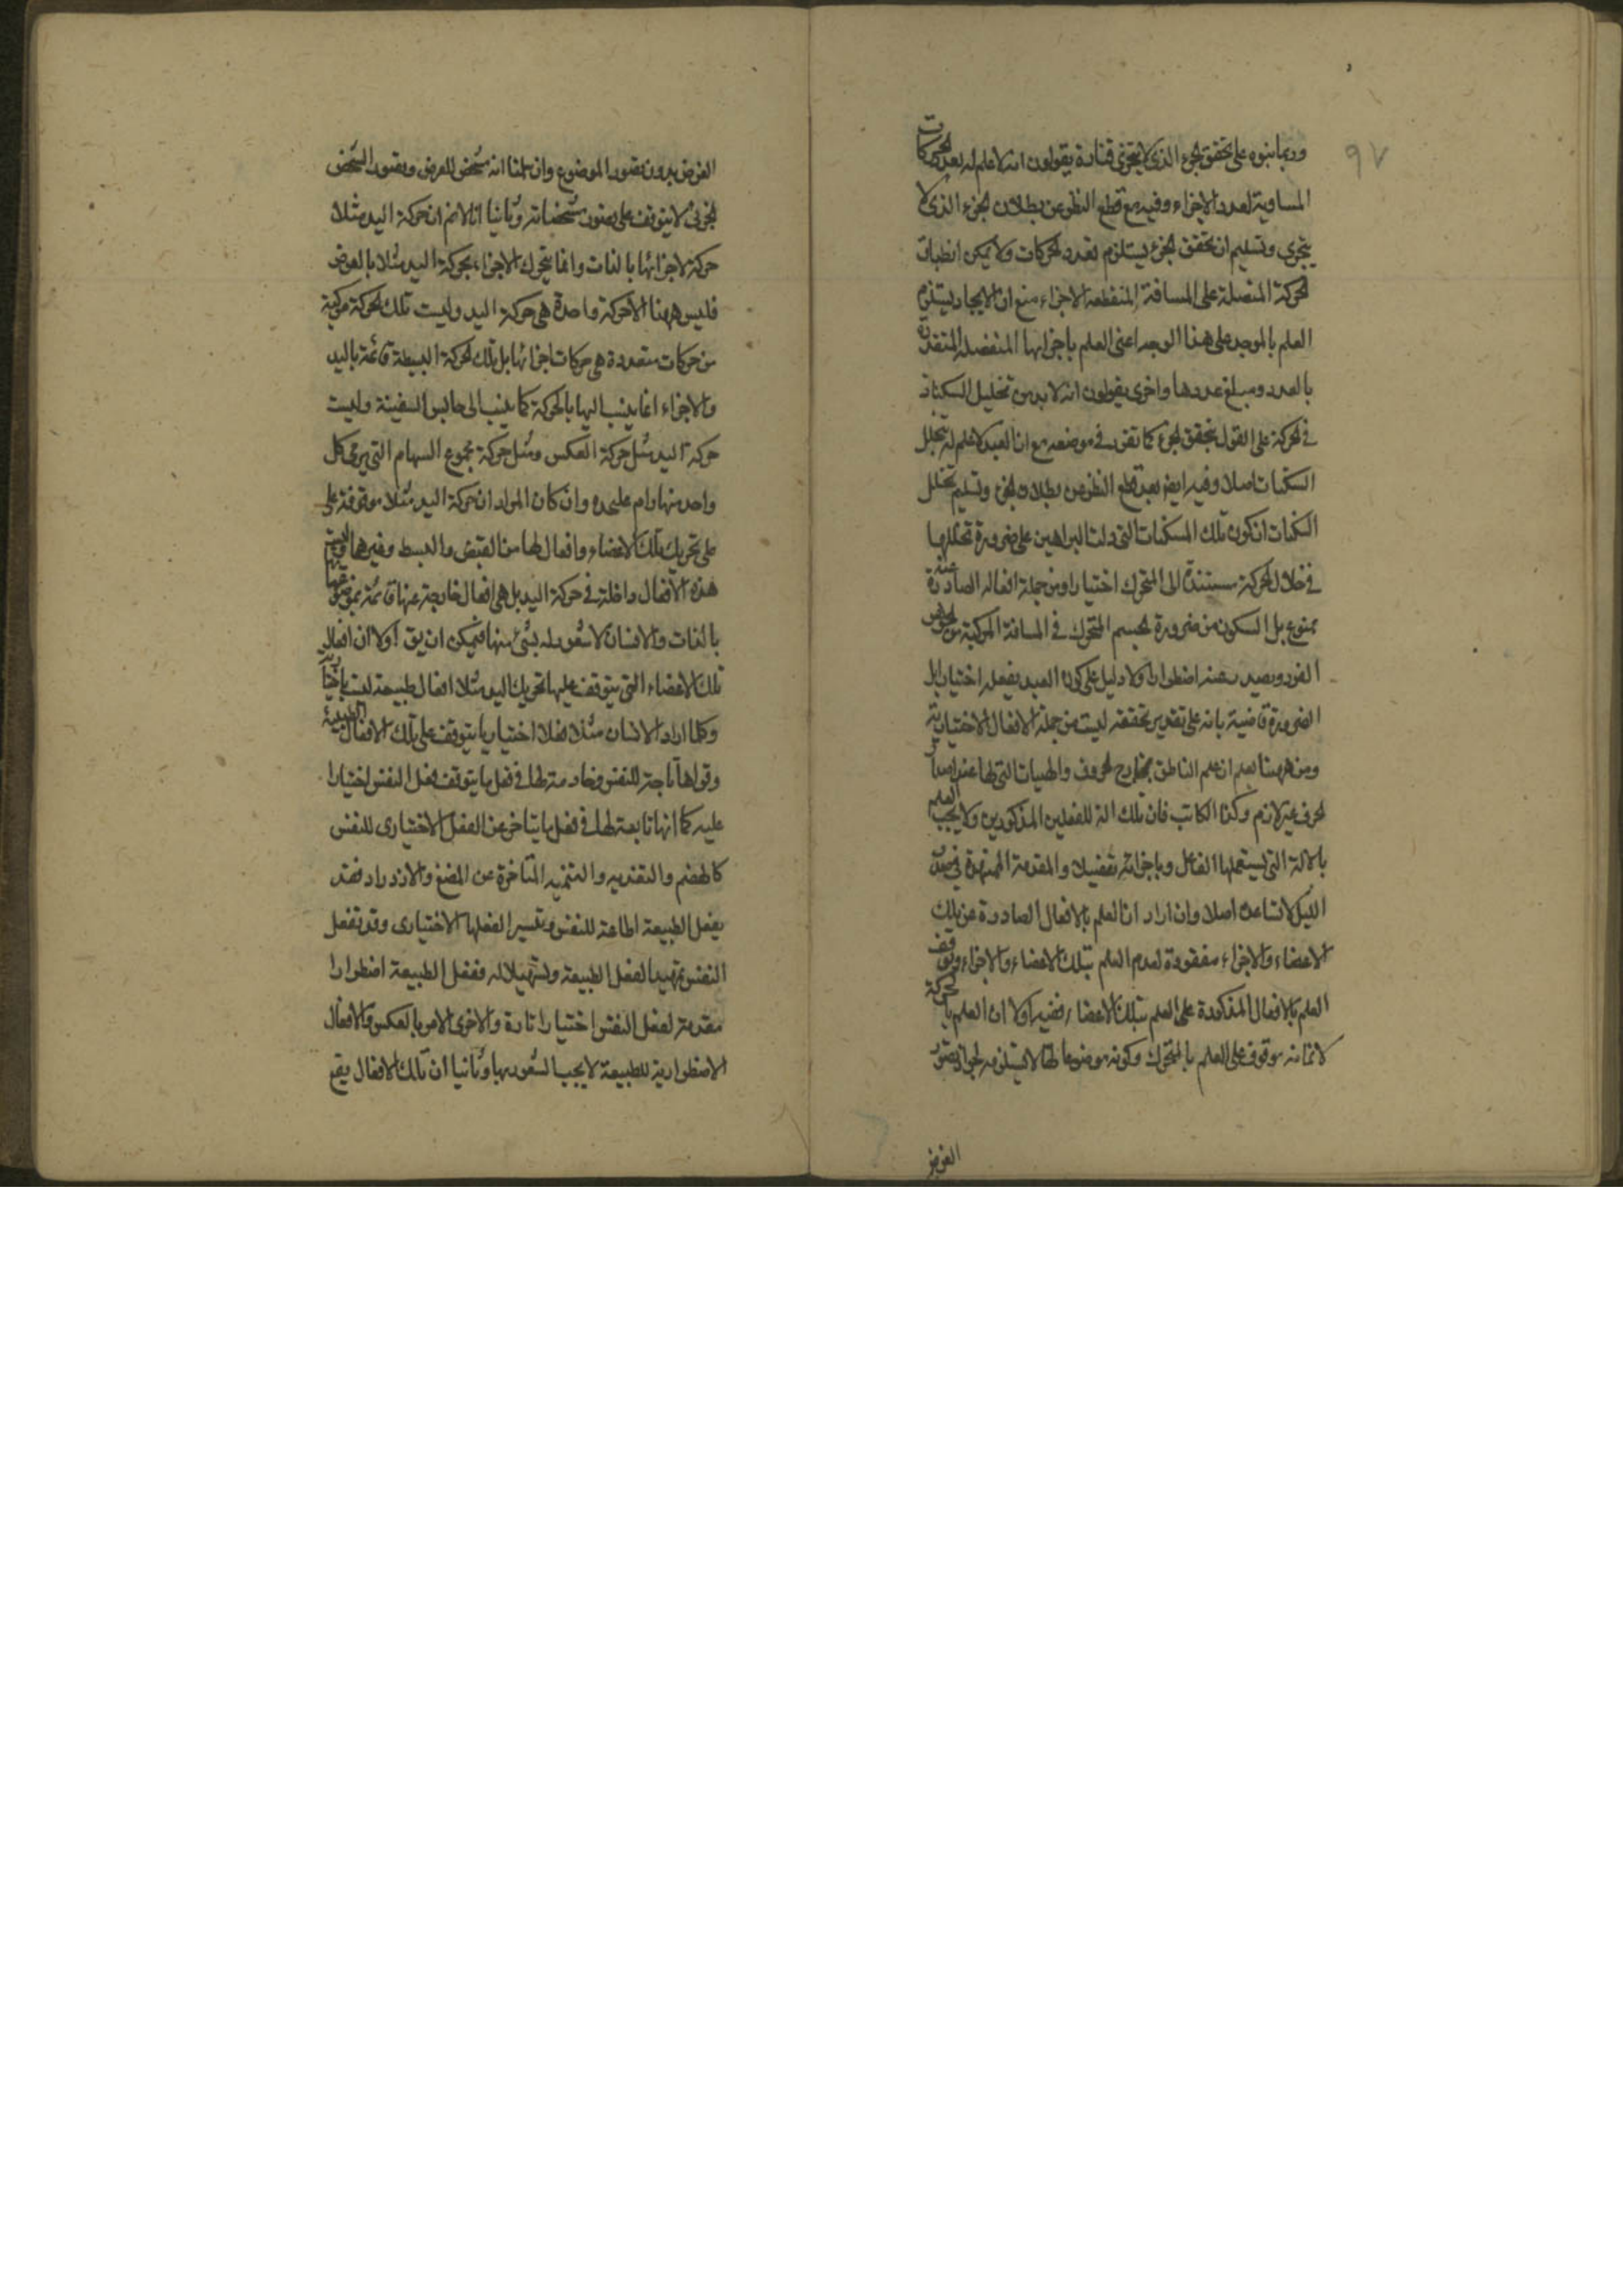 ٩٧
وربما بنوه على تحقق الجزء الذي لا يتجزى فتارة يقولون انه لا علم له بعدد الحركات
المساوية لعدد الاجزاء وفيه مع قطع النظر عن بطلان الجزء الذي لا
يتجزى وتسليم ان تحقق الجزء يستلزم تعدد الحركات ولا يمكن انطباق
الحركة المتصلة على المسافة المنقطعة الاجزاء منع ان الايجاد يستلزم
العلم بالموجد على هذا الوجه اعنى العلم باجزائها المنفصلة المتقدرة
بالعدد ومبلغ عددها واخرى يقولون انه لا بد من تخليل السكنات
في الحركة على القول بتحقق الجزء كما تقرر في موضعه مع ان العبد لا علم له بتخلل
السكنات اصلا وفيه ايضا بعد قطع النظر عن بطلان الجزء وتسليم تخلل
السكنات ان كون تلك السكنات التي دلت البراهين على ضرورة تخللها
في خلال الحركة مستندة الى المتحرك اختيارا ومن جملة افعاله الصادرة عنه
ممنوع بل السكون من ضرورة الجسم المتحرك في المسافة المركبة من الجواهر
الفرد ويصدر عنه اضطرارا ولا دليل على كون العبد يفعله اختيارا بل
الضرورة قاضية بانه على تقدير تحققه ليست من جملة الافعال الاختيارية
ومن ههنا يعلم ان علم الناطق بمخارج الحروف والهيات التي لها عند اصدار
الحرف غير لازم وكذا الكاتب فان تلك الة للفعلين المذكورين ولا يجب العلم
بالالة التي يستعملها الفاعل وباجزائه تفصيلا والمقدمة الممهدة في صدر
الدليل لا تساعده اصلا وان اراد ان العلم بالافعال الصادرة عن تلك
الاعضاء والاجزاء مفقودة لعدم العلم بتلك الاعضاء والاجزاء وتوقف
العلم بالافعال المذكورة على العلم بتلك الاعضاء ففيه اولا ان العلم بالحركة
لا نم انه موقوف على العلم بالمتحرك وكونه موضوعا لها لا يستلزمه لجواز تصور
العرض
العرض بدون تصور الموضوع وان سلمنا انه مشخص للعرض وتصور الشخص
الجزئى لا يتوقف على تصور مشخصاته وثانيا انا لانم ان حركة اليد مثلا
حركة لاجزائها بالذات وانما يتحرك الاجزاء بحركة اليد مثلا بالعرض
فليس ههنا الا حركة واحدة هي حركة اليد وليست تلك الحركة مركبة
من حركات متعددة هي حركات اجزائها بل تلك الحركة البسيطة قائمة باليد
والاجزاء انما ينسب اليها بالحركة كما ينسب الى جالس السفينة وليست
حركة اليد مثل حركة العكس ومثل حركة مجموع السهام التي يرمى كل
واحد منها رام عليحده وان كان المراد ان حركة اليد مثلا موقوفة على
على تحريك تلك الاعضاء وافعال لها من القبض والبسط وغيرها وليست
هذه الافعال داخلة في حركة اليد بل هي افعال خارجة عنها قائمة بموضوعها
بالذات والانسان لا شعور له بشئ منها فيمكن ان يق اولا ان افعال
تلك الاعضاء التي يتوقف عليها تحريك اليد مثلا افعال طبيعة ليست باختيارية
وكلما اراد الانسان مثلا فعلا اختياريا يتوقف على تلك الافعال الطبيعة
وقواها تابعة للنفس وخادمة لها في فعل ما يتوقف فعل النفس اختيارا
عليه كما انها تابعة لها في فعل ما يتاخر عن الفعل الاختيارى للنفس
كالهضم والتغذيه والتنميه المتاخرة عن المضغ والازدراد فقد
يفعل الطبيعة اطاعة للنفس وتيسيرا لفعلها الاختيارى وقد تفعل
النفس تمهيدا لفعل الطبيعة وتسهيلا له ففعل الطبيعة اضطرارا
مقدمة لفعل النفس اختيارا تارة والاخرى الامر بالعكس والافعال
الاضطرارية للطبيعة لا يجب الشعور بها وثانيا ان تلك الافعال يقع